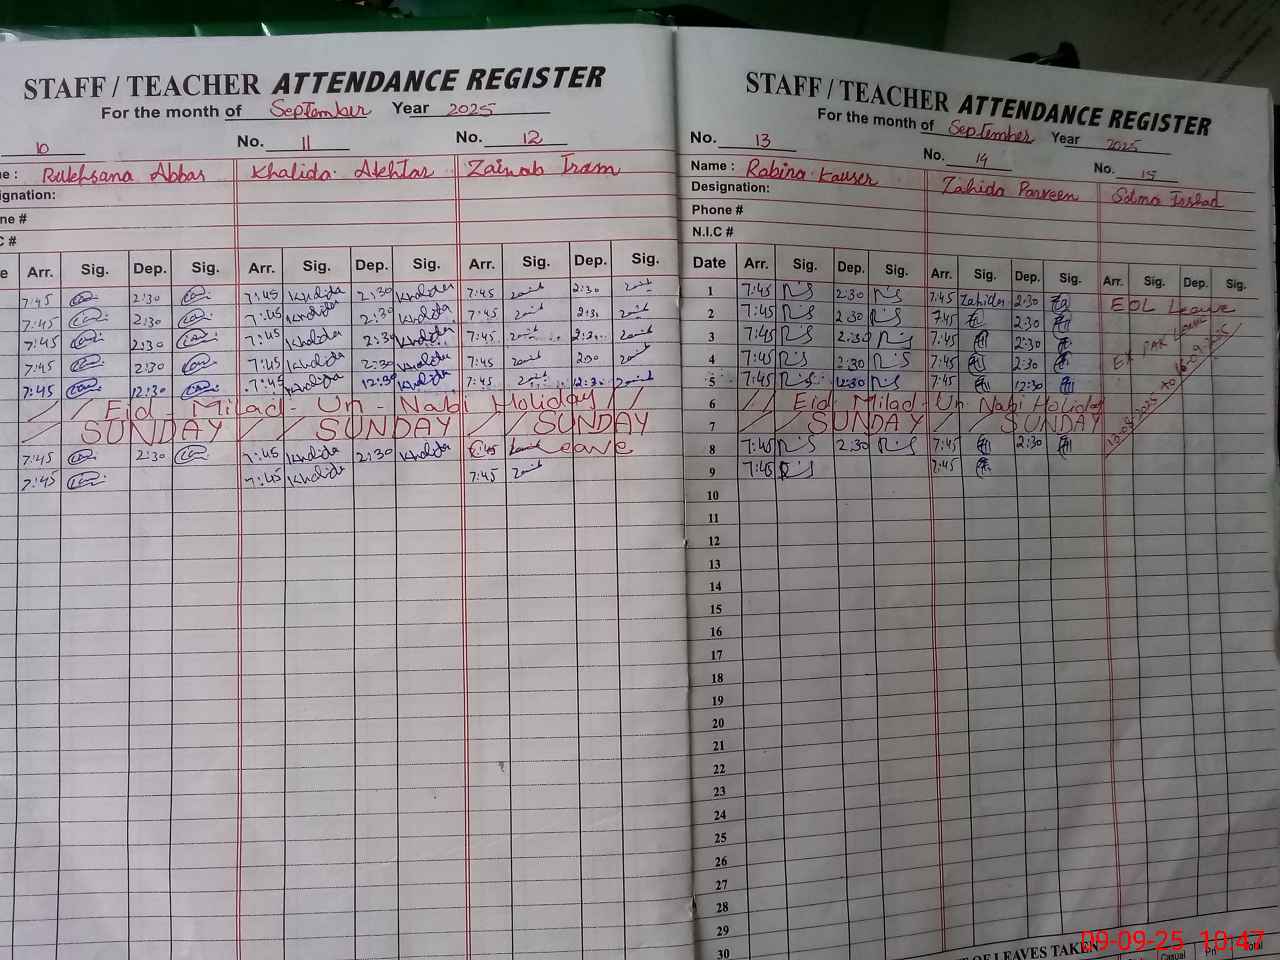 STAFF / TEACHER ATTENDANCE REGISTER
For the month of September Year 2025
10 No. 11 No. 12
e : Rukhsana Abbas Khalida Akhtar Zainab Iram
ignation:
ne #
C #
e Arr. Sig. Dep. Sig. Arr. Sig. Dep. Sig. Arr. Sig. Dep. Sig.
7:45 2:30 7:45 Khalida 2:30 Khalida 7:45 2:30
7:45 2:30 7:45 Khalida 2:30 Khalida 7:45 2:30
7:45 2:30 7:45 Khalida 2:30 Khalida 7:45 2:30
7:45 2:30 7:45 Khalida 2:30 Khalida 7:45
7:45 12:30 7:45 Khalida 12:30 Khalida 7:45 12:30
Eid - Milad - Un - Nabi Holiday
SUNDAY SUNDAY SUNDAY
7:45 2:30 7:45 Khalida 2:30 Khalida Leave
7:45 7:45 Khalida 7:45
STAFF / TEACHER ATTENDANCE REGISTER
For the month of September Year 2025
No. 13 No. 14 No. 15
Name : Robina Kauser Zahida Parveen Salma Irshad
Designation:
Phone #
N.I.C #
Date Arr. Sig. Dep. Sig. Arr. Sig. Dep. Sig. Arr. Sig. Dep. Sig.
1 7:45 2:30 7:45 Zahida 2:30 EOL Leave
2 7:45 2:30 7:45 2:30
3 7:45 2:30 7:45 2:30 EX PAK Leave
4 7:45 2:30 7:45 2:30
5 7:45 12:30 7:45 12:30
6 Eid - Milad - Un Nabi Holiday
7 SUNDAY SUNDAY
8 7:45 2:30 7:45 2:30
9 7:45 7:45
10
11
12
13
14
15
16
17
18
19
20
21
22
23
24
25
26
27
28
29
30
OF LEAVES TAKEN
Casual Pri Total
09-09-25 10:47